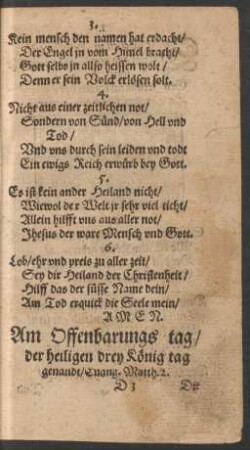 3.
Kein mensch den namen hat erdacht/
Der Engel jn vom Himel bracht/
Gott selbs in allso heissen wolt/
Denn er sein Volck erlösen solt.
4.
Nicht aus einer zeitlichen not/
Sondern von Sünd/ von Hell vnd
Tod/
Vnd vns durch sein leiden vnd todt
Ein ewigs Reich erwürb bey Gott.
5.
Es ist kein ander Heiland nicht/
Wiewol der Welt jr sehr viel ticht/
Allein hilfft vns aus aller not/
Jhesus der ware Mensch vnd Gott.
6.
Lob/ ehr vnd preis zu aller zeit/
Sey dir Heiland der Christenheit/
Hilff das der süsse Name dein/
Am Tod erquick die Seele mein/
A M E N.
Am Offenbarungs tag/
der heiligen drey König tag
genandt/ Euang. Matth. 2.
D 3 Die